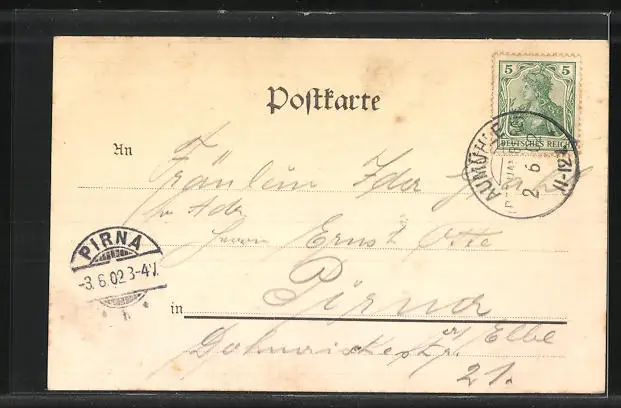 5 5
DEUTSCHES REICH
Postkarte
AUMÜHLE
2 6
11-12
An
Fräulein Ida
p. Adr.
Herrn Ernst Otte
PIRNA
-3.6.02 3-4
in Pirna
a/ Elbe
21.